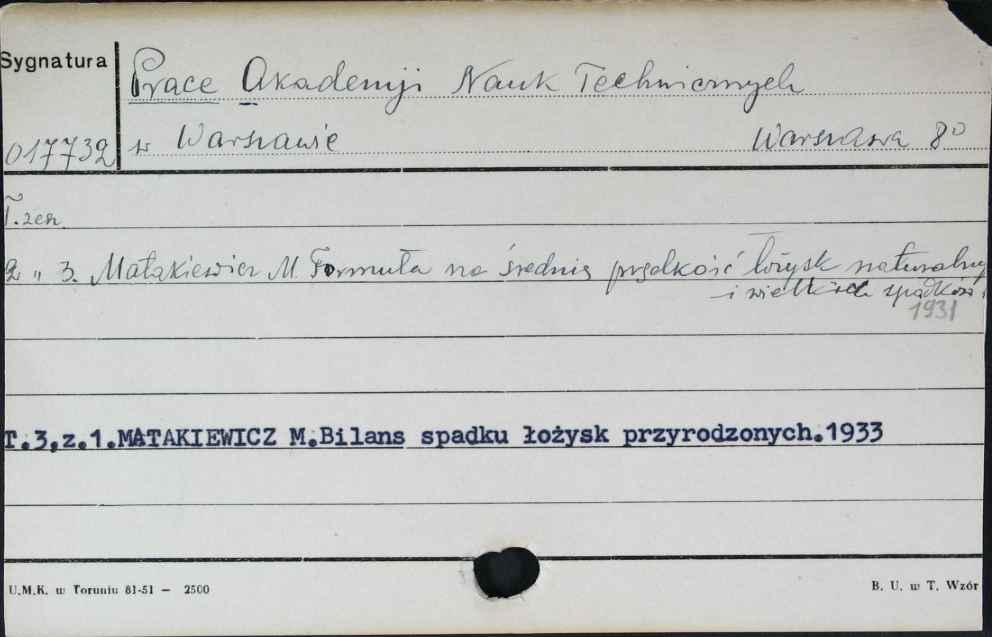 Sygnatura
Prace Akademji Nauk Technicznych
017732
w Warszawie Warszawa 8°
T. zesz.
2 " 3. Matakiewicz M. Formuła na średnią prędkość łożysk naturalny
i wielkich spadków i
1931
T.3,z.1.MATAKIEWICZ M.Bilans spadku łożysk przyrodzonych.1933
U.M.K. w Toruniu 81-51 — 2500
B. U. w T. Wzór